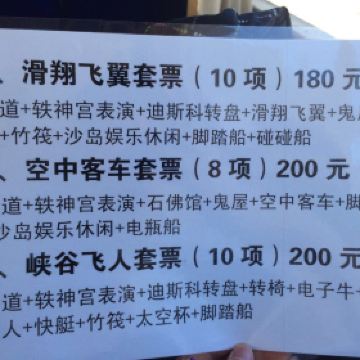 、滑翔飞翼套票（10 项）180 元
道+轶神宫表演+迪斯科转盘+滑翔飞翼+鬼屋
+竹筏+沙岛娱乐休闲+脚踏船+碰碰船
、空中客车套票（8 项）200 元
道+轶神宫表演+石佛馆+鬼屋+空中客车+脚
沙岛娱乐休闲+电瓶船
、峡谷飞人套票（10 项）200 元
道+轶神宫表演+迪斯科转盘+转椅+电子牛+
人+快艇+竹筏+太空杯+脚踏船